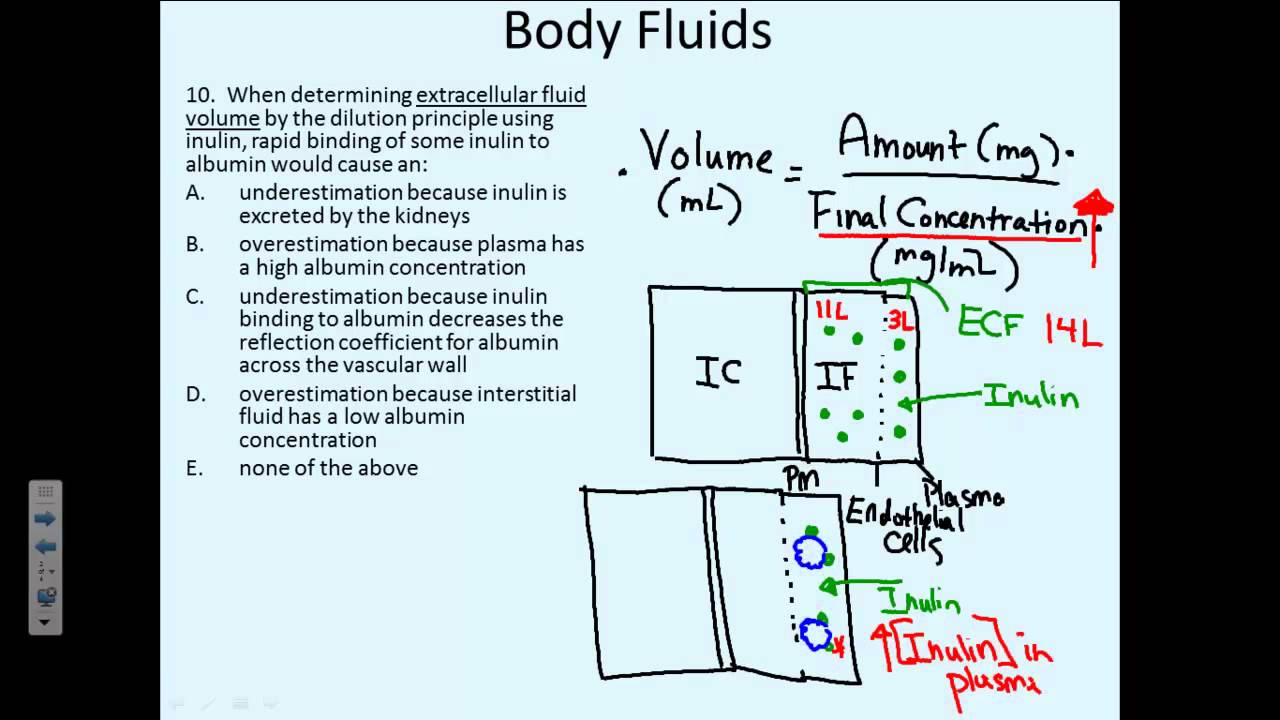 Body Fluids
10. When determining extracellular fluid
volume by the dilution principle using
inulin, rapid binding of some inulin to
albumin would cause an:
A. underestimation because inulin is
excreted by the kidneys
B. overestimation because plasma has
a high albumin concentration
C. underestimation because inulin
binding to albumin decreases the
reflection coefficient for albumin
across the vascular wall
D. overestimation because interstitial
fluid has a low albumin
concentration
E. none of the above
Volume = Amount (mg)
(mL) Final Concentration
(mg/mL)
11L 3L
ECF 14L
IC IF
Inulin
PM
Plasma
Endothelial
Cells
Inulin
↑[Inulin] in
plasma